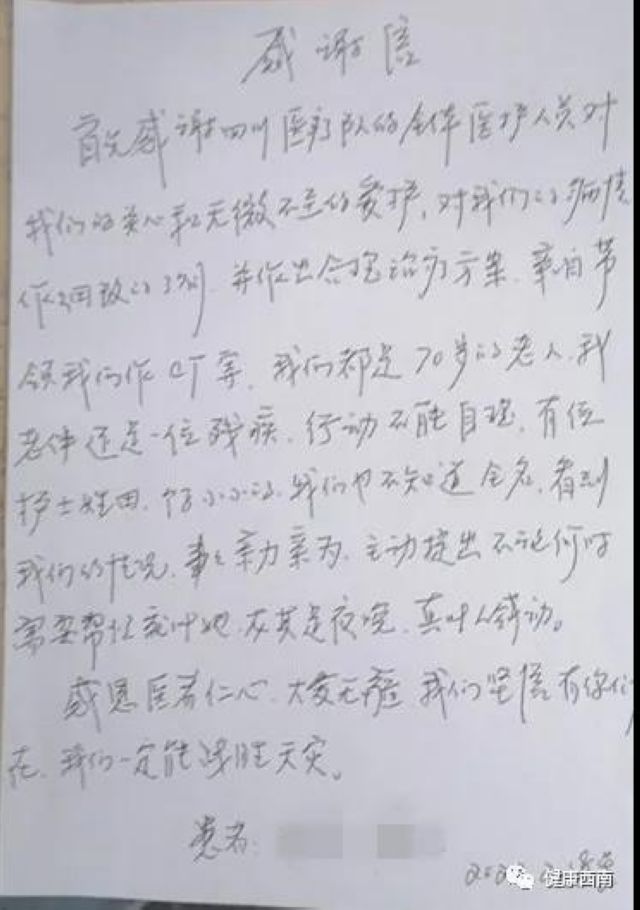 感谢信
首先感谢四川医疗队的全体医护人员对
我们的关心和无微不至的爱护,对我们的病情
作细致的 并作出合理治疗方案,亲自带
领我们作CT等,我们都是70岁的老人,我
老伴还是一位残疾,行动不能自理,有位
护士姓田,个子小小的,我们也不知道全名,看到
我们的情况,事事亲力亲为,主动提出不论何时
需要帮忙就叫她,尤其是夜晚,真叫人感动。
感恩医者仁心,大爱无疆 我们坚信有你们
在,我们一定能战胜天灾。
患者:
健康西南